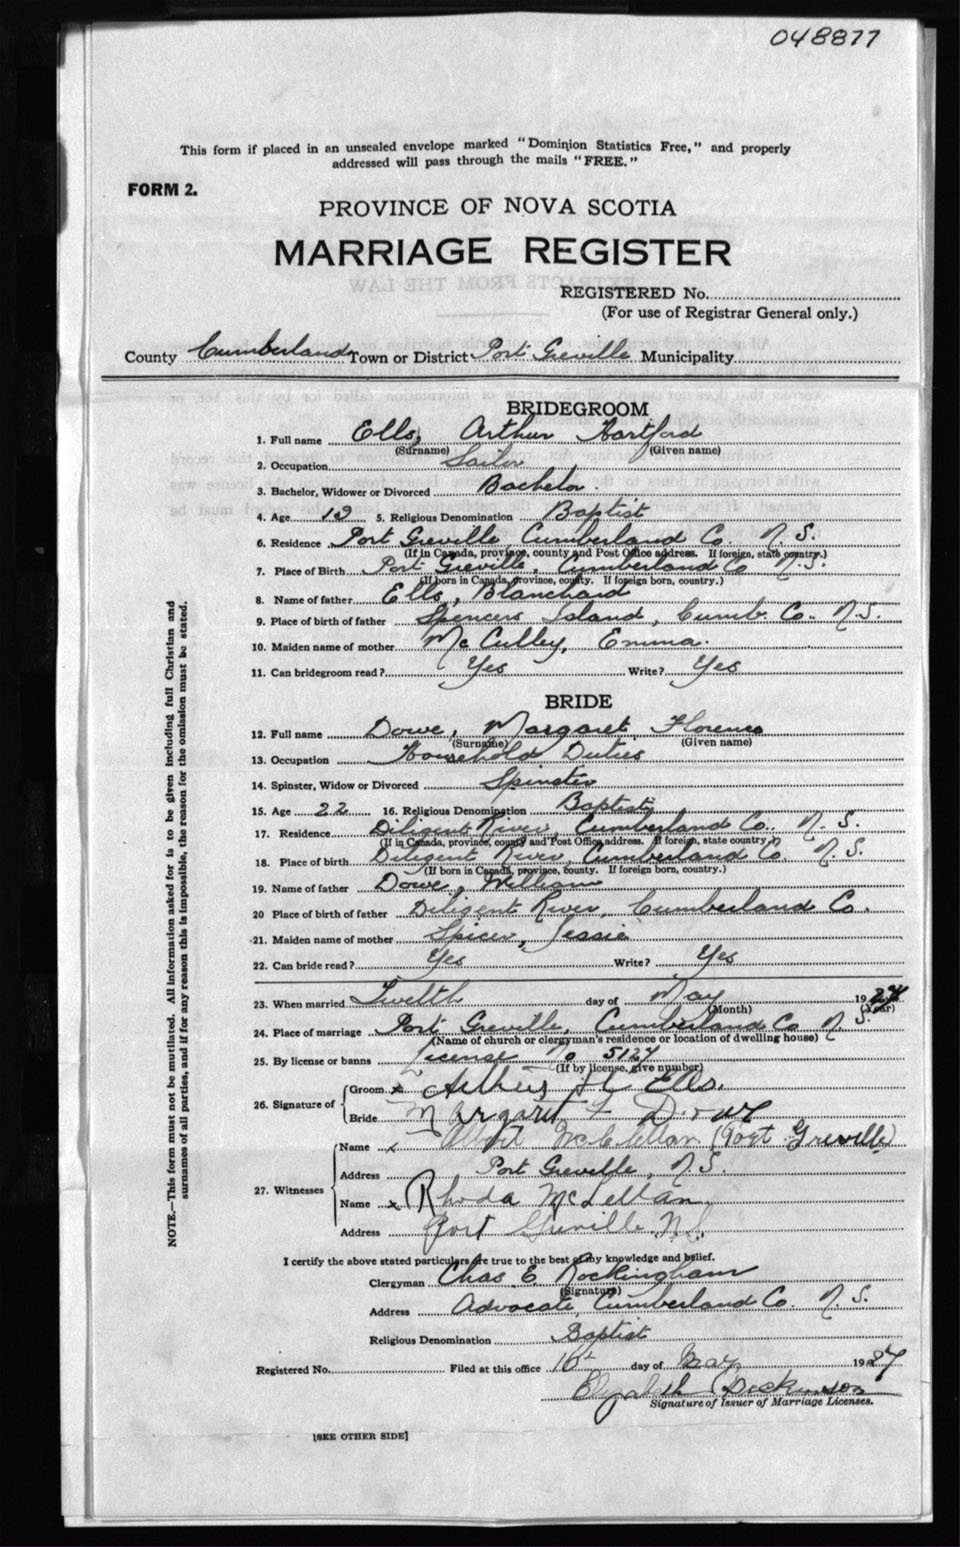 048877
This form if placed in an unsealed envelope marked "Dominion Statistics Free," and properly
addressed will pass through the mails "FREE."
FORM 2.
PROVINCE OF NOVA SCOTIA
MARRIAGE REGISTER
REGISTERED No.
(For use of Registrar General only.)
County Cumberland Town or District Port Greville Municipality
BRIDEGROOM
1. Full name Ells, Arthur Hartford
(Surname) (Given name)
2. Occupation Sailor
3. Bachelor, Widower or Divorced Bachelor.
4. Age 5. Religious Denomination Baptist
6. Residence Port Greville Cumberland Co. N.S.
(If in Canada, province, county and Post Office address. If foreign, state country.)
7. Place of Birth Port Greville, Cumberland Co N.S.
(If born in Canada, province, county. If foreign born, country.)
8. Name of father Ells, Blanchard
9. Place of birth of father Spencers Island, Cumb. Co. N.S.
10. Maiden name of mother McCulley, Emma.
11. Can bridegroom read? Yes Write? Yes
BRIDE
12. Full name Dowe, Margaret Florence
(Surname) (Given name)
13. Occupation Household Duties
14. Spinster, Widow or Divorced Spinster
15. Age 22 16. Religious Denomination Baptist
17. Residence Diligent River, Cumberland Co. N.S.
(If in Canada, province, county and Post Office address. If foreign, state country.)
18. Place of birth Diligent River, Cumberland Co. N.S.
(If born in Canada, province, county. If foreign born, country.)
19. Name of father Dowe, William
20 Place of birth of father Diligent River, Cumberland Co.
21. Maiden name of mother Spicer, Jessie
22. Can bride read? Yes Write? Yes
23. When married Twelth day of May 19
(Month) (Year)
24. Place of marriage Port Greville, Cumberland Co N.S.
(Name of church or clergyman's residence or location of dwelling house)
25. By license or banns License No 5127
(If by license, give number)
26. Signature of Groom x Arthur H Ells.
Bride Margaret F Dowe
27. Witnesses Name x Albert McLellan (Port Greville)
Address Port Greville, N.S.
Name x Rhoda McLellan
Address Port Greville N.S.
I certify the above stated particulars are true to the best of my knowledge and belief.
Clergyman Chas. E Rockingham
(Signature)
Address Advocate, Cumberland Co. N.S.
Religious Denomination Baptist
Registered No. Filed at this office day of May 1927
Elizabeth Dickinson
Signature of Issuer of Marriage Licenses.
[SEE OTHER SIDE]
NOTE.—This form must not be mutilated. All information asked for is to be given including full Christian and
surnames of all parties, and if for any reason this is impossible, the reason for the omission must be stated.